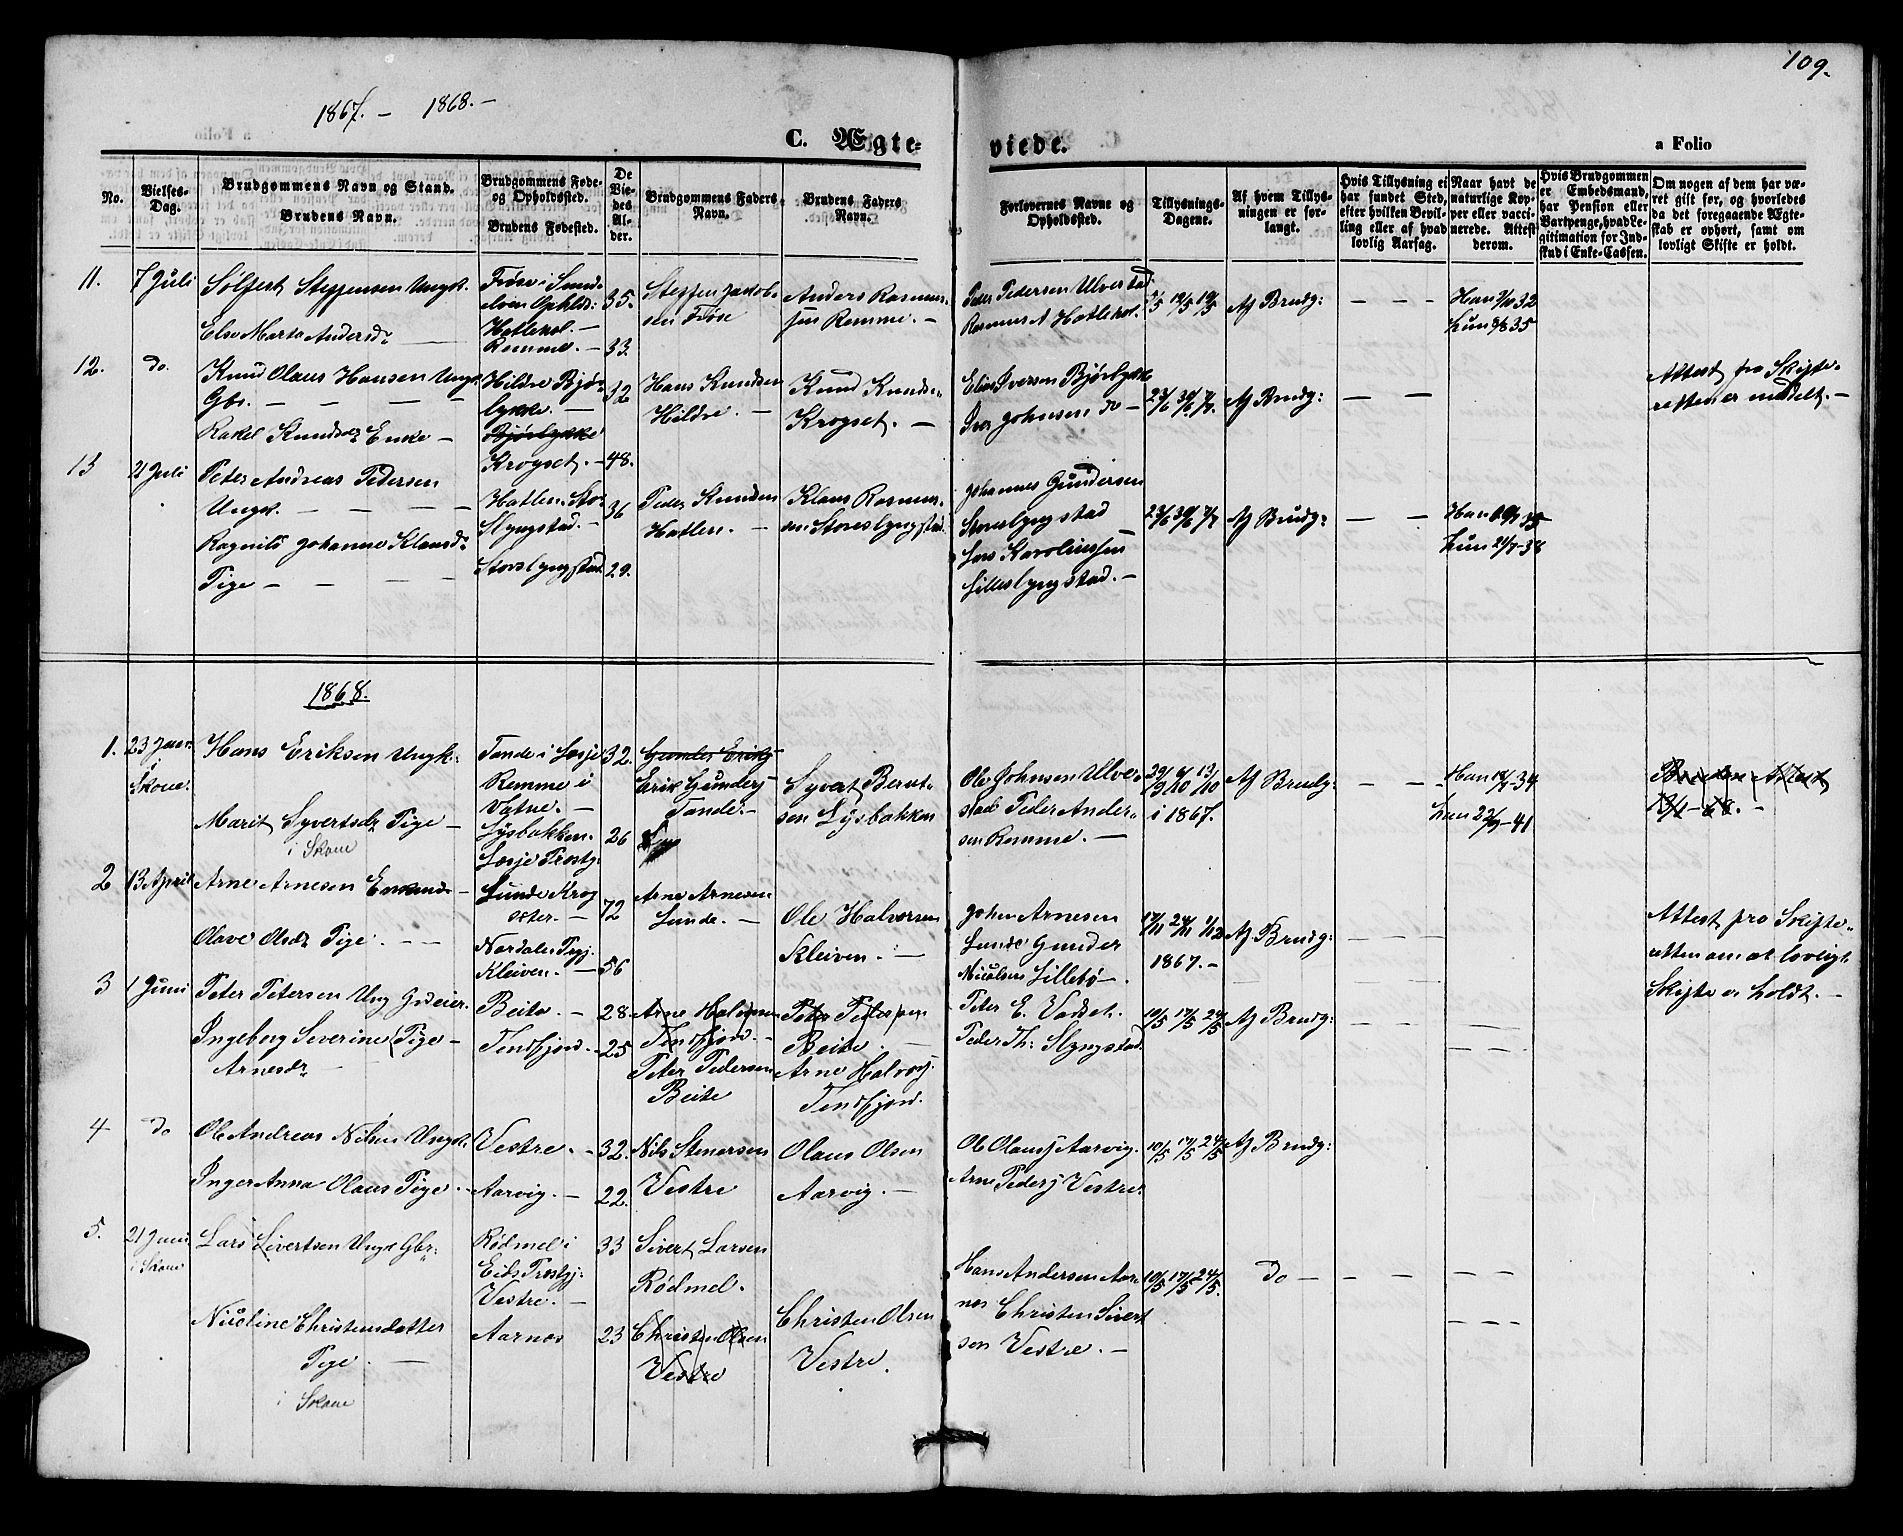 109.
1867. - 1868. -
C. Ægte-
viede.
a Folio
No.
Vielses-
Dag.
Brudgommens Navn og Stand.
Brudens Navn.
Brudgommens Føde-
og Opholdssted.
Brudens Fødested.
De
Vie-
des
Al-
der.
Brudgommens Faders
Navn.
Brudens Faders
Navn.
Forlovernes Navne og
Opholdssted.
Tillysnings-
Dagene.
Af hvem Tillys-
ningen er for-
langt.
Hvis Tillysning ei
har fundet Sted,
efter hvilken Bevil-
ling eller af hvad
lovlig Aarsag.
Naar havt de
naturlige Kop-
per eller vacci-
nerede. Attest
derom.
Hvis Brudgommen
er Embedsmand,
har Pension eller
Vartpenge, hvad Le-
gitimation for Ind-
skud i Enke-Cassen.
Om nogen af dem har væ-
ret gift før, og hvorledes
da det foregaaende Ægte-
skab er ophørt, samt om
lovligt Skifte er holdt.
11.
7 Juli
Sølfest Steffensen Ungk.
Else Marta Andersd
Hatlehol. -
Remme. -
35.
33.
Steffen Jacob-
sen Frøse
Anders Rasmus-
sen Remme. -
Peder Pedersen Ulvestad
Rasmus A Hatlehol.
3/5 12/5 19/5
Af Brudg:
- -
Han 32
Hun 35
12.
do.
Knud Olaus Hansen Ungk.
Gbr. - - - -
Rakel Knudsdr Enke -
Hildre Bjør-
lykke. -
Bjørlykke
Krogset. -
32
48.
Hans Knudsen
Hildre. -
Knud Knuds-
Krogset. -
Elias Iversen Bjørlykke
Iver Johnsen do -
23/6 30/6 7/7.
Af Brudg:
- -
Attest fra Skifte-
retten er meddelt. -
13
21 Juli
Peter Andreas Pedersen
Ungk. - - - -
Ragnild Johanne Klausdr
Pige - - - -
Hatlen. Stor
Slyngstad. -
Storeslyngstad.
36
29.
Peder Knudsen
Hatlen. -
Klaus Rasmus-
sen Storeslyngstad.
Johannes Gundersen
Storeslyngstad
Jens Karolinssen
Lilleslyngstad. -
23/6 30/6 7/7
Af Brudg:
- -
Han 35
Hun 21/7-38
1868.
1.
23 Janr.
i
Skoue.
Hans Eriksen Ungk.
Marit Syvertsdr Pige -
i Skoue
Tande i Lesje
Remme i
Vatne. -
Lysbakken.
Lesje Prestg.
32.
26
Gunder Eriks
Erik Gunders
Tande. -
Syvert Bernt-
sen Lysbakken
Ole Johnsen Ulve-
stad Peder Ander-
sen Remme. -
29/9 6/10 13/10
i 1867.
Af Brudg:
- -
Han 34
Hun 22/9-41
2
13 April
Arne Arnesen Enkemd -
Olave Olsdr Pige. - -
Lunde Krog
ester. -
Nordalen
Kleiven. -
72
56
Arne Arnesen
Lunde. -
Ole Halvorsen
Kleiven. -
Johan Arnesen
Lunde Gunder
Nicolsen Lillebø -
17/11 24/11 1/12
1867. -
Af Brudg:
- -
Attest fra Skifte-
retten om at lovligt
Skifte er holdt. -
3
1 Juni
Peter Petersen Ung Gdeier.
Ingeborg Severine Pige -
Arnesdr -
Beite. -
Tendfjord. -
28.
25
Arne Halvorsen
Tendfjord. -
Peter Pedersen
Beite
Peter Pedersen
Beite. -
Arne Halvors.
Tendfjord.
Peter E. Vadset.
Peder Th: Slyngstad.
10/5 17/5 24/5
Af Brudg:
- -
- -
- -
4
do
Ole Andreas Nilsen Ungk.
Inger Anna Olaus Pige. -
Vestre. -
Aarvig. -
32.
22.
Nils Stenersen
Vestre
Olaus Olsen
Aarvig. -
Ole Olaus Aarvig.
Arne Peders Vestre.
10/5 17/5 24/5
Af Brudg:
5.
21 Juni
i Skoue
Lars Sivertsen Ungk Gbr.
Nicoline Christensdatter
Pige. -
i Skoue
Rødmel i
Eids Prestgj:
Vestre. -
Aarnes
33
23
Sivert Larsen
Rødmel.
Christen Olsen
Vestre
Christen Olsen
Vestre.
Hans Andersen Aar-
nes Christen Sivert
sen Vestre. -
10/5 17/5 24/5.
do -
- -
- -
- - -